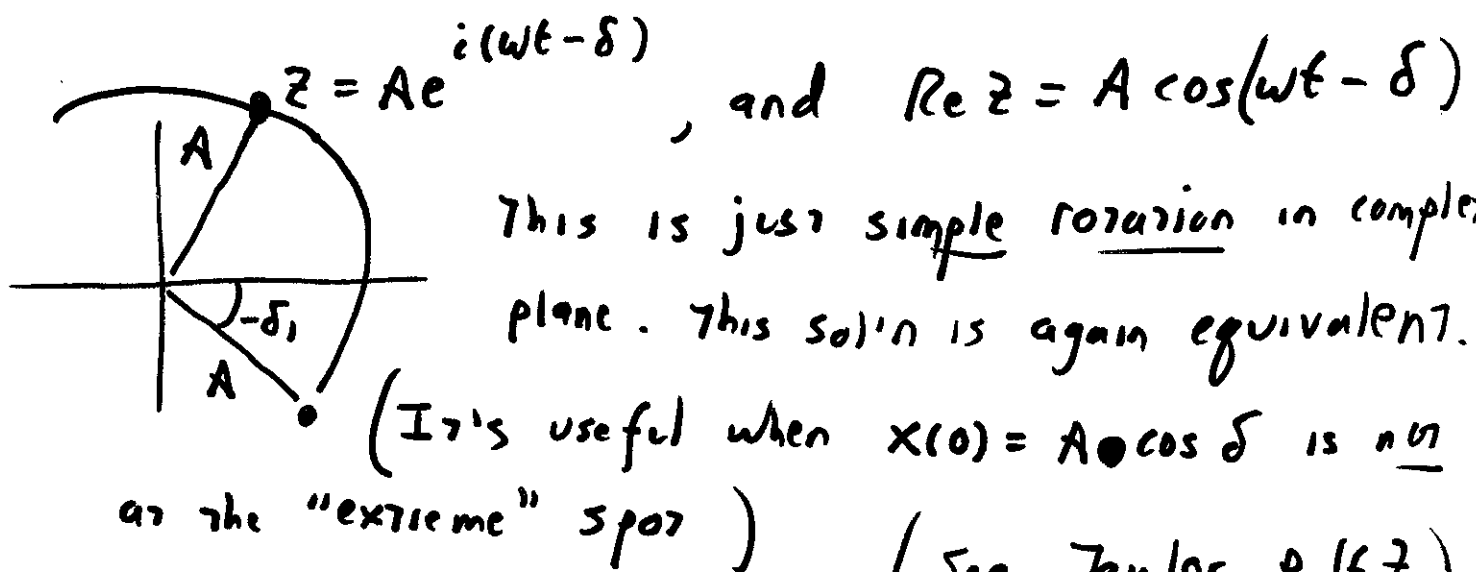 z = Ae^{i(ωt-δ)}, and Re z = A cos(ωt - δ)
A
This is just simple rotation in
plane. This sol'n is again equivalent.
-δ,
A
(It's useful when x(0) = A cos δ is not
at the "extreme" spot)